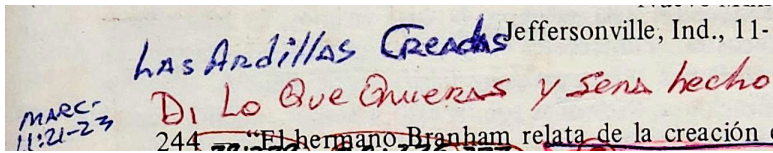 Jeffersonville, Ind., 11-
LAS Ardillas Creadas
Di Lo Que Quieras y Sera hecho
MARC-
11:21-23
244 "El hermano Branham relata de la creación